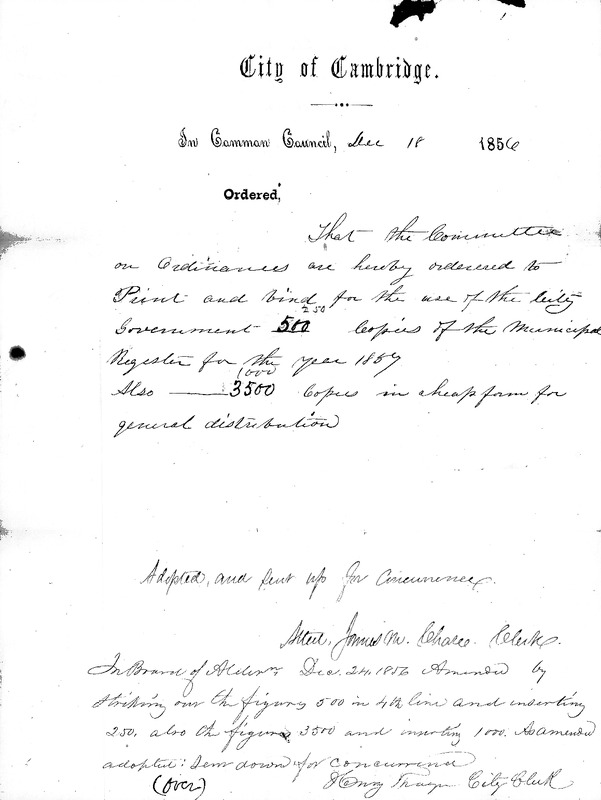 City of Cambridge.
In Common Council, Dec 18 1856
Ordered,
That the Committee
on Ordinances are hereby orderered to
Print and bind for the use of the City
250
Government 500 Copies of the Municipal
Register for the year 1857
1000
Also 3500 Copies in cheap form for
general distribution
Adopted, and sent up for Concurrence.
Attest, James M. Chase. Clerk.
In Board of Aldermn Dec. 24, 1856 Amended by
striking out the figures 500 in 4th line and inserting
250, also the figures 3500 and inserting 1000. As amended
adopted: Sent down for concurrence
(Over) Henry Thayer City Clerk